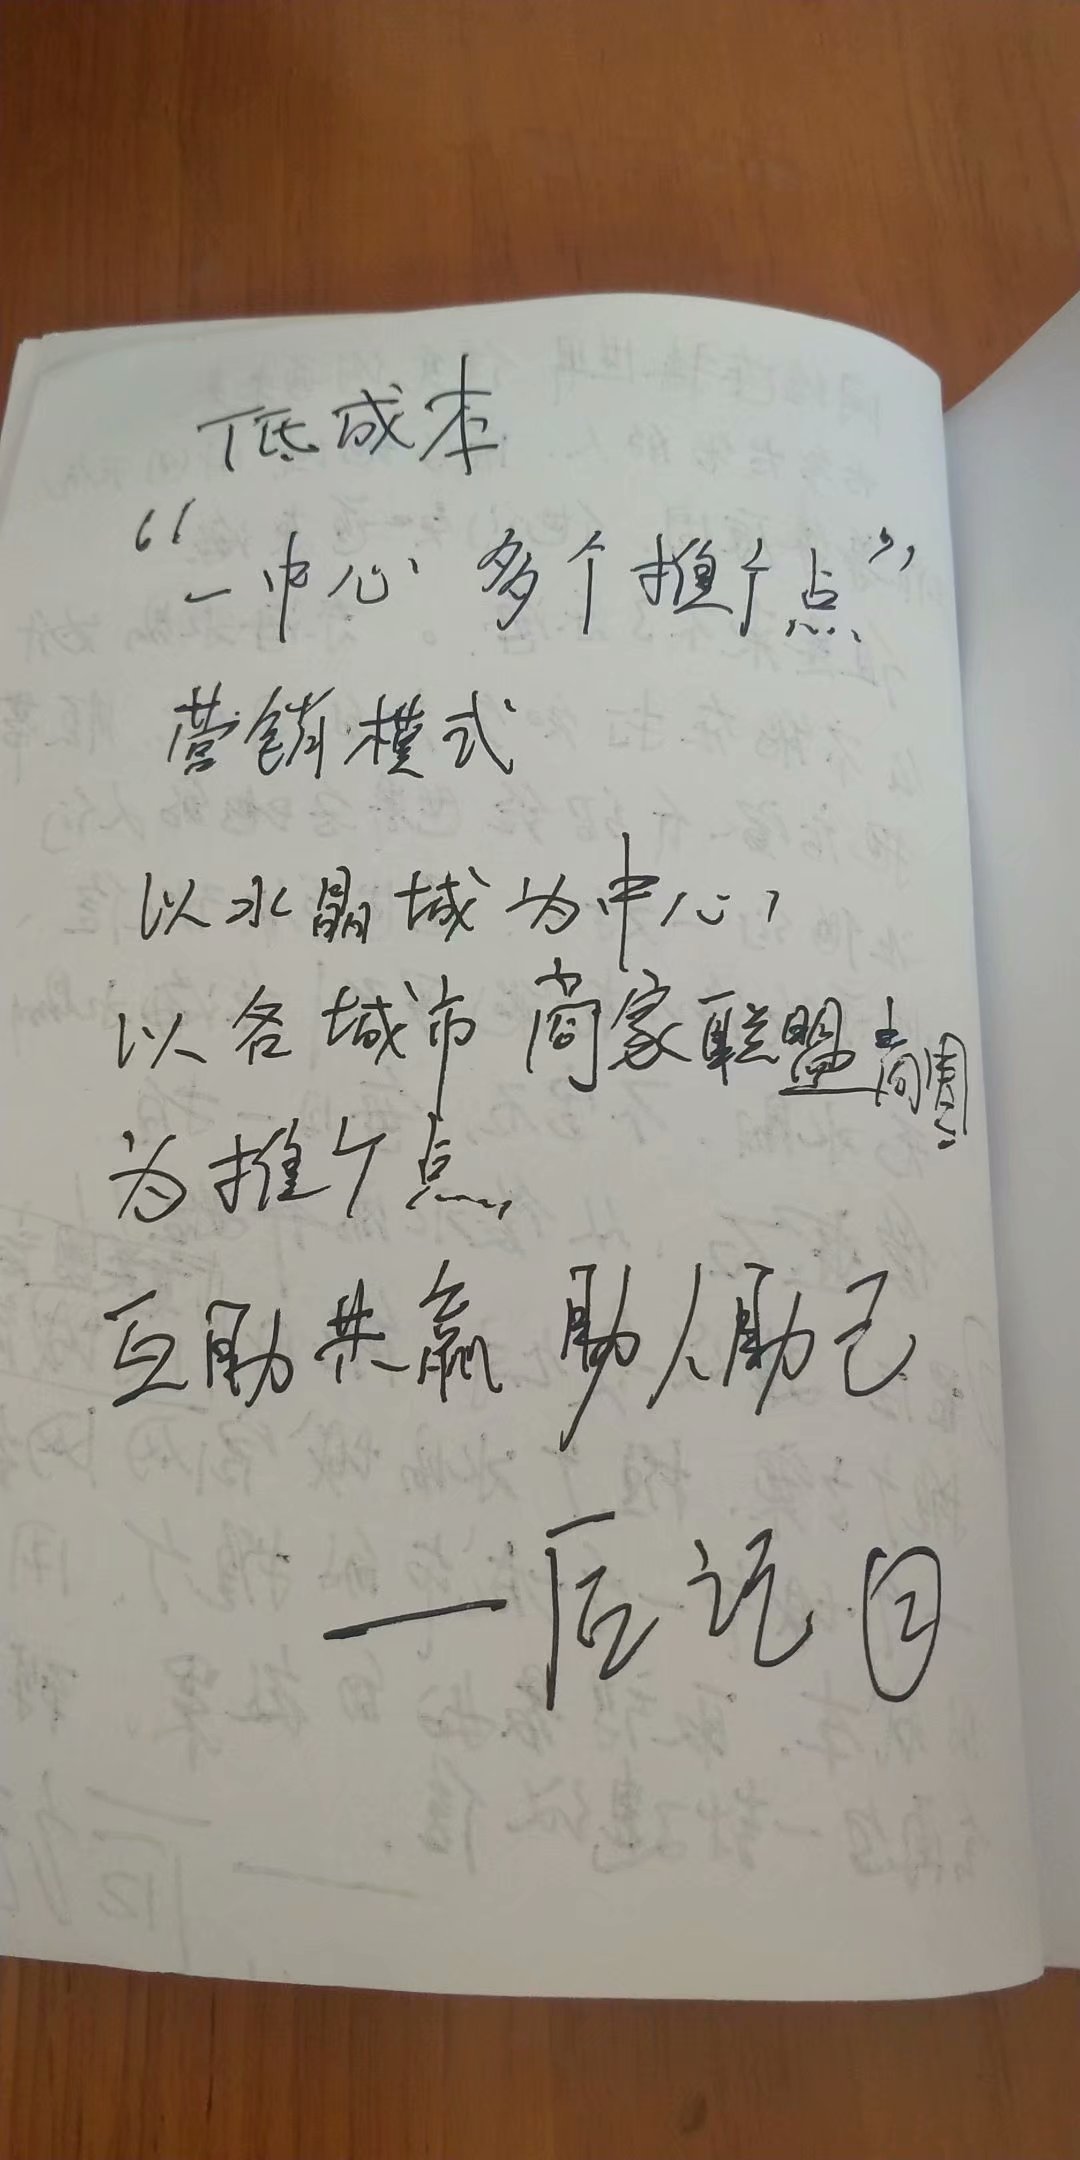 低成本
“一中心 多个推广点”
营销模式
以水晶城为中心,
以各城市商家联盟商圈
为推广点
互助共赢 助人助己
—后记②